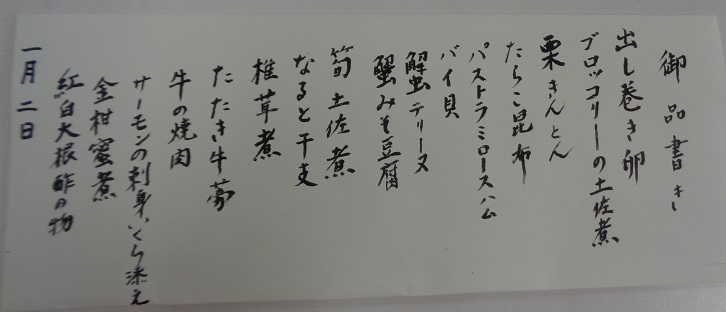 御品書き
出し巻き卵
ブロッコリーの土佐煮
栗きんとん
たらこ昆布
パストラミロースハム
バイ貝
蟹テリーヌ
蟹みそ豆腐
筍土佐煮
なると干支
椎茸煮
たたき牛蒡
牛の焼肉
サーモンの刺身、いくら添え
金柑蜜煮
紅白大根酢の物
一月二日